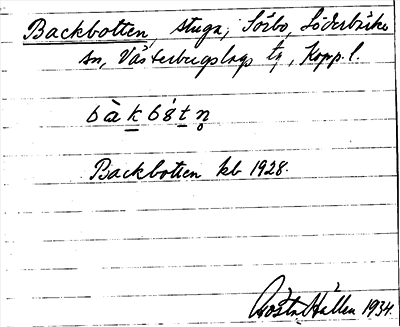 Backbotten, stuga, Sörbo, Söderbärke
sn, Västerbergslags tg, Kopp. l.
bàkbótn̥
Backbotten kb 1928.
Gösta Hállen 1934.